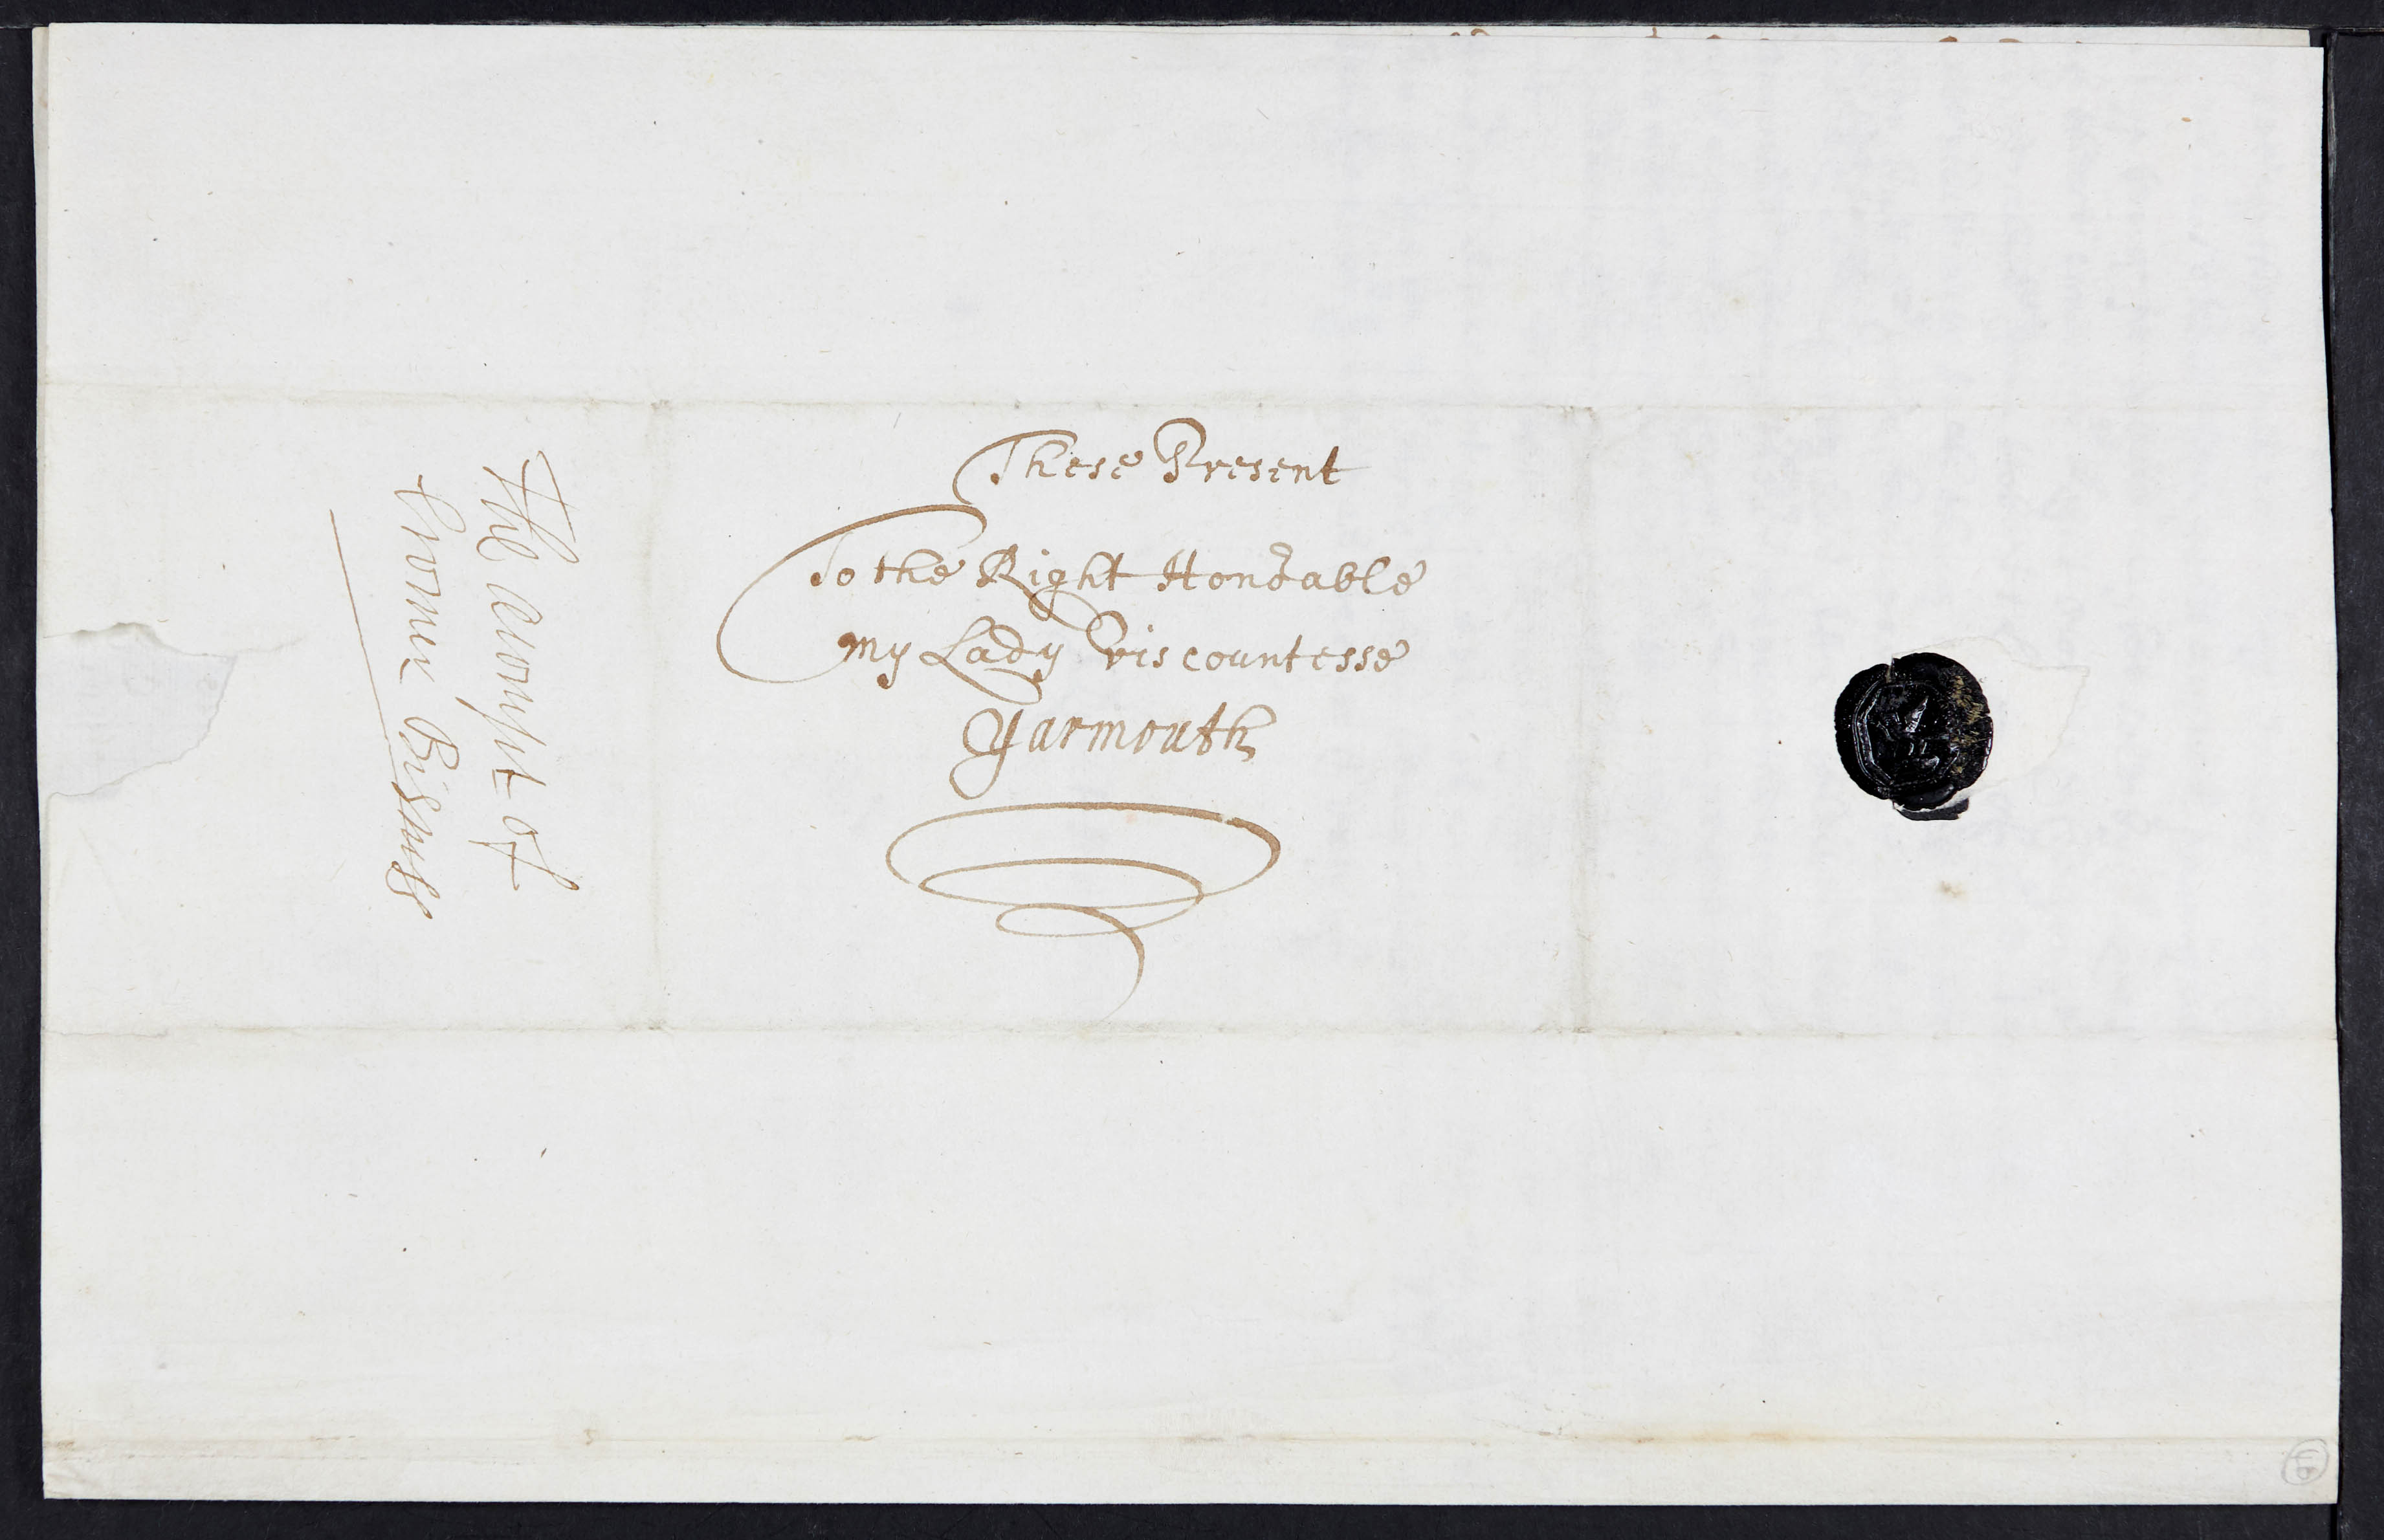 These Present
To the Right Honorable
my Lady Viscountesse
Yarmouth
The accompt of
Cromer Bisness